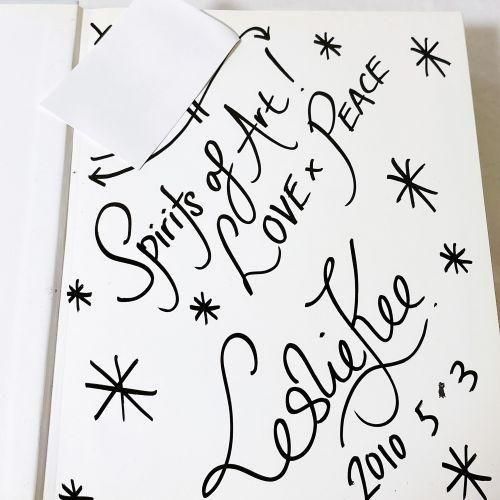 Spirits of Art!
LOVE × PEACE
Leslie Kee.
2010 5 3